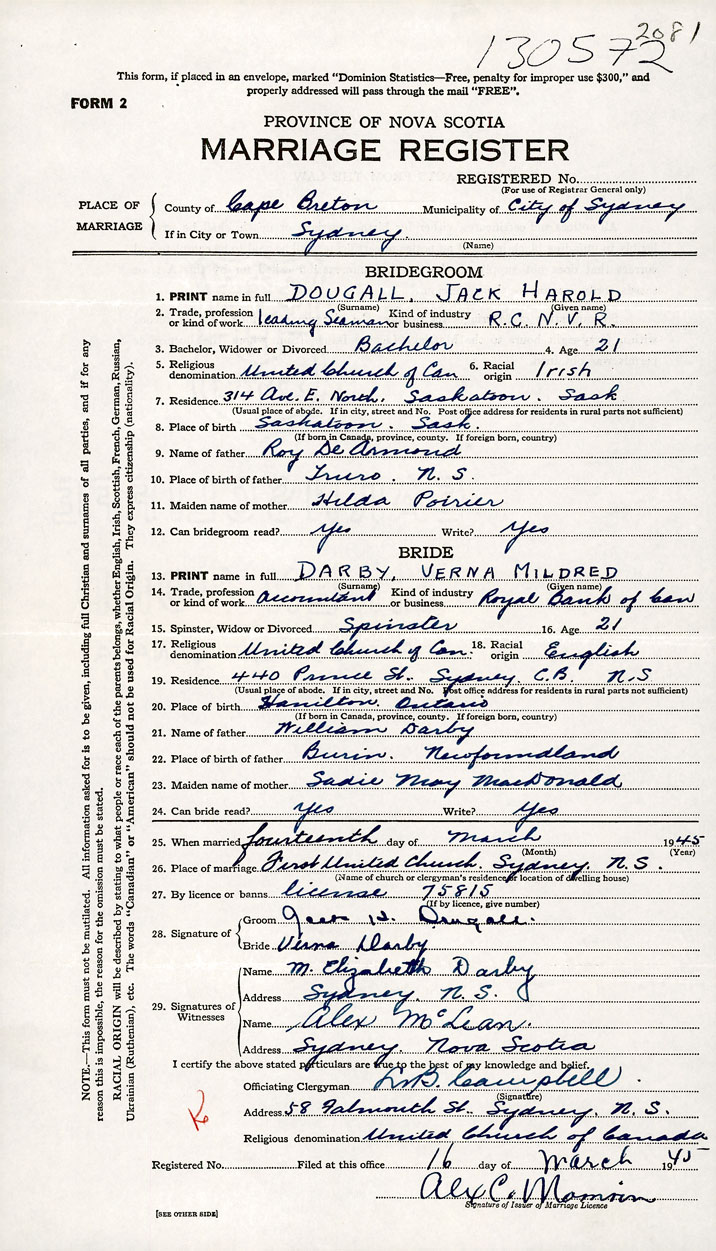 2081
130572
This form, if placed in an envelope, marked "Dominion Statistics—Free, penalty for improper use $300," and
properly addressed will pass through the mail "FREE".
FORM 2
PROVINCE OF NOVA SCOTIA
MARRIAGE REGISTER
REGISTERED No.
(For use of Registrar General only)
PLACE OF MARRIAGE
County of Cape Breton Municipality of City of Sydney
If in City or Town Sydney.
(Name)
BRIDEGROOM
1. PRINT name in full DOUGALL, JACK HAROLD
(Surname) (Given name)
2. Trade, profession or kind of work leading Seaman Kind of industry or business R.C.N.V.R.
3. Bachelor, Widower or Divorced Bachelor 4. Age 21
5. Religious denomination United Church of Can 6. Racial origin Irish
7. Residence 314 Ave. E. North. Saskatoon. Sask
(Usual place of abode. If in city, street and No. Post office address for residents in rural parts not sufficient)
8. Place of birth Saskatoon. Sask.
(If born in Canada, province, county. If foreign born, country)
9. Name of father Roy De Armond
10. Place of birth of father Truro. N.S.
11. Maiden name of mother Hilda Poirier
12. Can bridegroom read? Yes Write? Yes
BRIDE
13. PRINT name in full DARBY, VERNA MILDRED
(Surname) (Given name)
14. Trade, profession or kind of work accountant Kind of industry or business Royal Bank of Can
15. Spinster, Widow or Divorced Spinster 16. Age 21
17. Religious denomination United Church of Can. 18. Racial origin English
19. Residence 440 Prince St. Sydney. C.B. N.S
(Usual place of abode. If in city, street and No. Post office address for residents in rural parts not sufficient)
20. Place of birth Hamilton. Ontario
(If born in Canada, province, county. If foreign born, country)
21. Name of father William Darby
22. Place of birth of father Burin. Newfoundland
23. Maiden name of mother Sadie May MacDonald
24. Can bride read? Yes Write? Yes
25. When married fourteenth day of March 1945
(Month) (Year)
26. Place of marriage First United Church. Sydney. N.S.
(Name of church or clergyman's residence or location of dwelling house)
27. By licence or banns license 75815
(If by licence, give number)
28. Signature of
Groom Jack H. Dougall.
Bride Verna Darby
29. Signatures of Witnesses
Name M. Elizabeth Darby
Address Sydney. N.S.
Name Alex McLean.
Address Sydney. Nova Scotia
I certify the above stated particulars are true to the best of my knowledge and belief.
Officiating Clergyman Campbell.
(Signature)
Address 58 Falmouth St. Sydney. N.S.
Religious denomination United Church of Canada
Registered No. Filed at this office 16 day of March 1945
Alex C.
Signature of Issuer of Marriage Licence
[SEE OTHER SIDE]
NOTE.—This form must not be mutilated. All information asked for is to be given, including full Christian and surnames of all parties, and if for any
reason this is impossible, the reason for the omission must be stated.
RACIAL ORIGIN will be described by stating to what people or race each of the parents belongs, whether English, Irish, Scottish, French, German, Russian,
Ukrainian (Ruthenian), etc. The words "Canadian" or "American" should not be used for Racial Origin. They express citizenship (nationality).